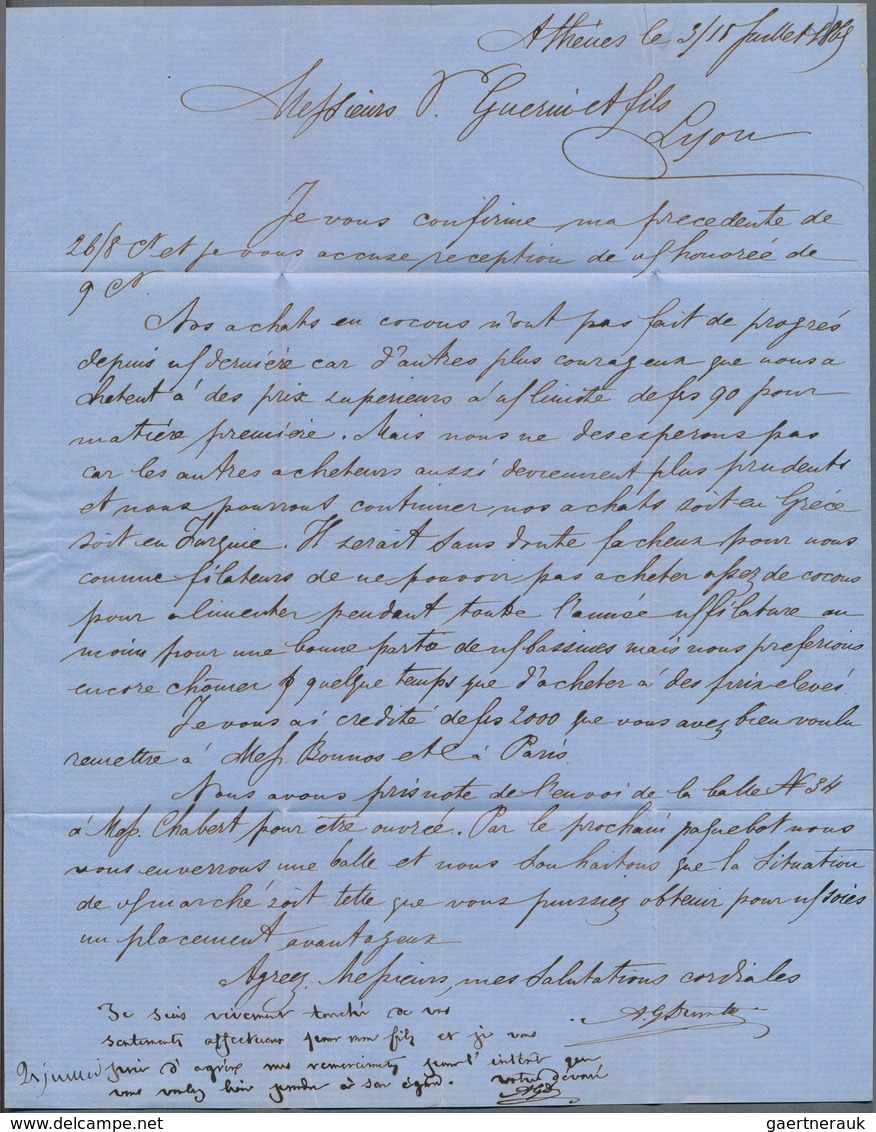 Athènes le 3/15 Juillet 1869
Messieurs V. Guerin et fils
Lyon
Je vous confirme ma precedente de
26/8 Ct et je vous accuse reception de vs honorée de
9 Ct
Nos achats en cocons n'ont pas fait de progrés
depuis ns derniére car d'autres plus courageux que nous a
chetent á des prix superieurs á ns limite de frs 90 pour
matiére premiére. Mais nous ne desesperons pas
car les autres acheteurs aussi deviennent plus prudents
et nous pourrons continuer nos achats soit en Gréce
soit en Turquie. Il serait sans doute facheux pour nous
comme filateurs de ne pouvoir pas acheter assez de cocons
pour alimenter pendant toute l'année ns filature au
moins pour une bonne partie de ns bassines mais nous preferions
encore chômer quelque temps que d'acheter á des prix elevés.
Je vous ai credité de frs 2000 que vous avez bien voulu
remettre á Mess. Bounos et C á Paris.
Nous avons pris note de l'envoi de la balle N 34
á Mess. Chabert pour être ouvrée. Par le prochain paquebot nous
vous enverrons une balle et nous souhaitons que la situation
de vs marché soit telle que vous puissiez obtenir pour ns soies
un placement avantageux
Agreez, Messieurs, mes salutations cordiales
Je suis vivement touché de vos
sentiments affectueux pour mon fils et je vous
prie d'agréer mes remerciments pour l'intérêt que
vous voulez bien prendre à son égard. votre dévoué
21 juillet
gaertnerauk @ delcampe.net